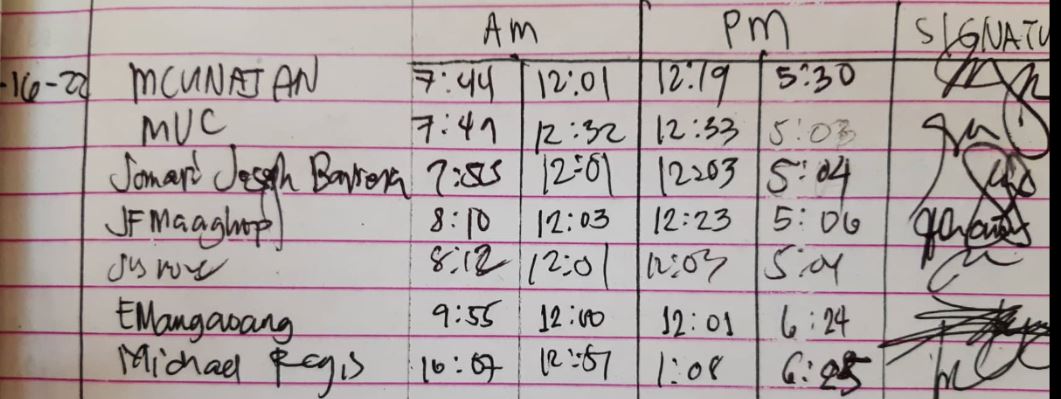 Am PM SIGNATU
-16-22 MCUNAJAN 7:44 12:01 12:19 5:30
MUC 7:49 12:32 12:33 5:03
Jomari Joseph 7:55 12:01 12:03 5:04
JFMaaghop 8:10 12:03 12:23 5:06
8:12 12:01 12:03 5:04
EMangaoang 9:55 12:00 12:01 6:24
Michael Regis 10:07 12:07 1:08 6:25